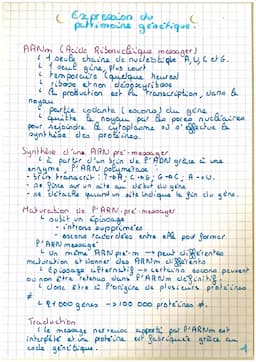 Expression du
patrimoine génétique.
ARNm (Acide Ribonucléique messager)
↳ 1 seule chaîne de nucléotide A,U,C et G.
↳ 1 seul gène, plus court
↳ temporaire (quelques heures)
↳ ribose et non désoxyribose
↳ La production est la transcription, dans le
noyau
↳ partie codante (exons) du gène
↳ quitte le noyau par les pores nucléaires
pour rejoindre le cytoplasme où s'effectue la
synthèse des protéines.
Synthèse d'une ARN pré-messager
↳ à partir d'un brin de l'ADN grâce à une
enzyme, l'ARN polymérase
- brin transcrit : T→A ; C→G ; G→C ; A→U.
- se fixe sur un site au début du gène
- se détache quand un site indique la fin du gène.
Maturation de l'ARN pré-messager
↳ subit un épissage
- introns supprimées
- exons raccordées entre elle pour former
l'ARN messager
↳ Un même ARN pré-m → peut différentes
maturation et donner des ARNm différents
↳ Épissage alternatif → certains exons peuvent
ou non être retenus dans l'ARNm définitif.
↳ donc être à l'origine de plusieurs protéines
≠.
↳ 21 000 gènes → > 100 000 protéines ≠.
Traduction
↳ le message nerveux apporté par l'ARNm est
interprété et une protéine est fabriquée grâce au
code génétique.
1